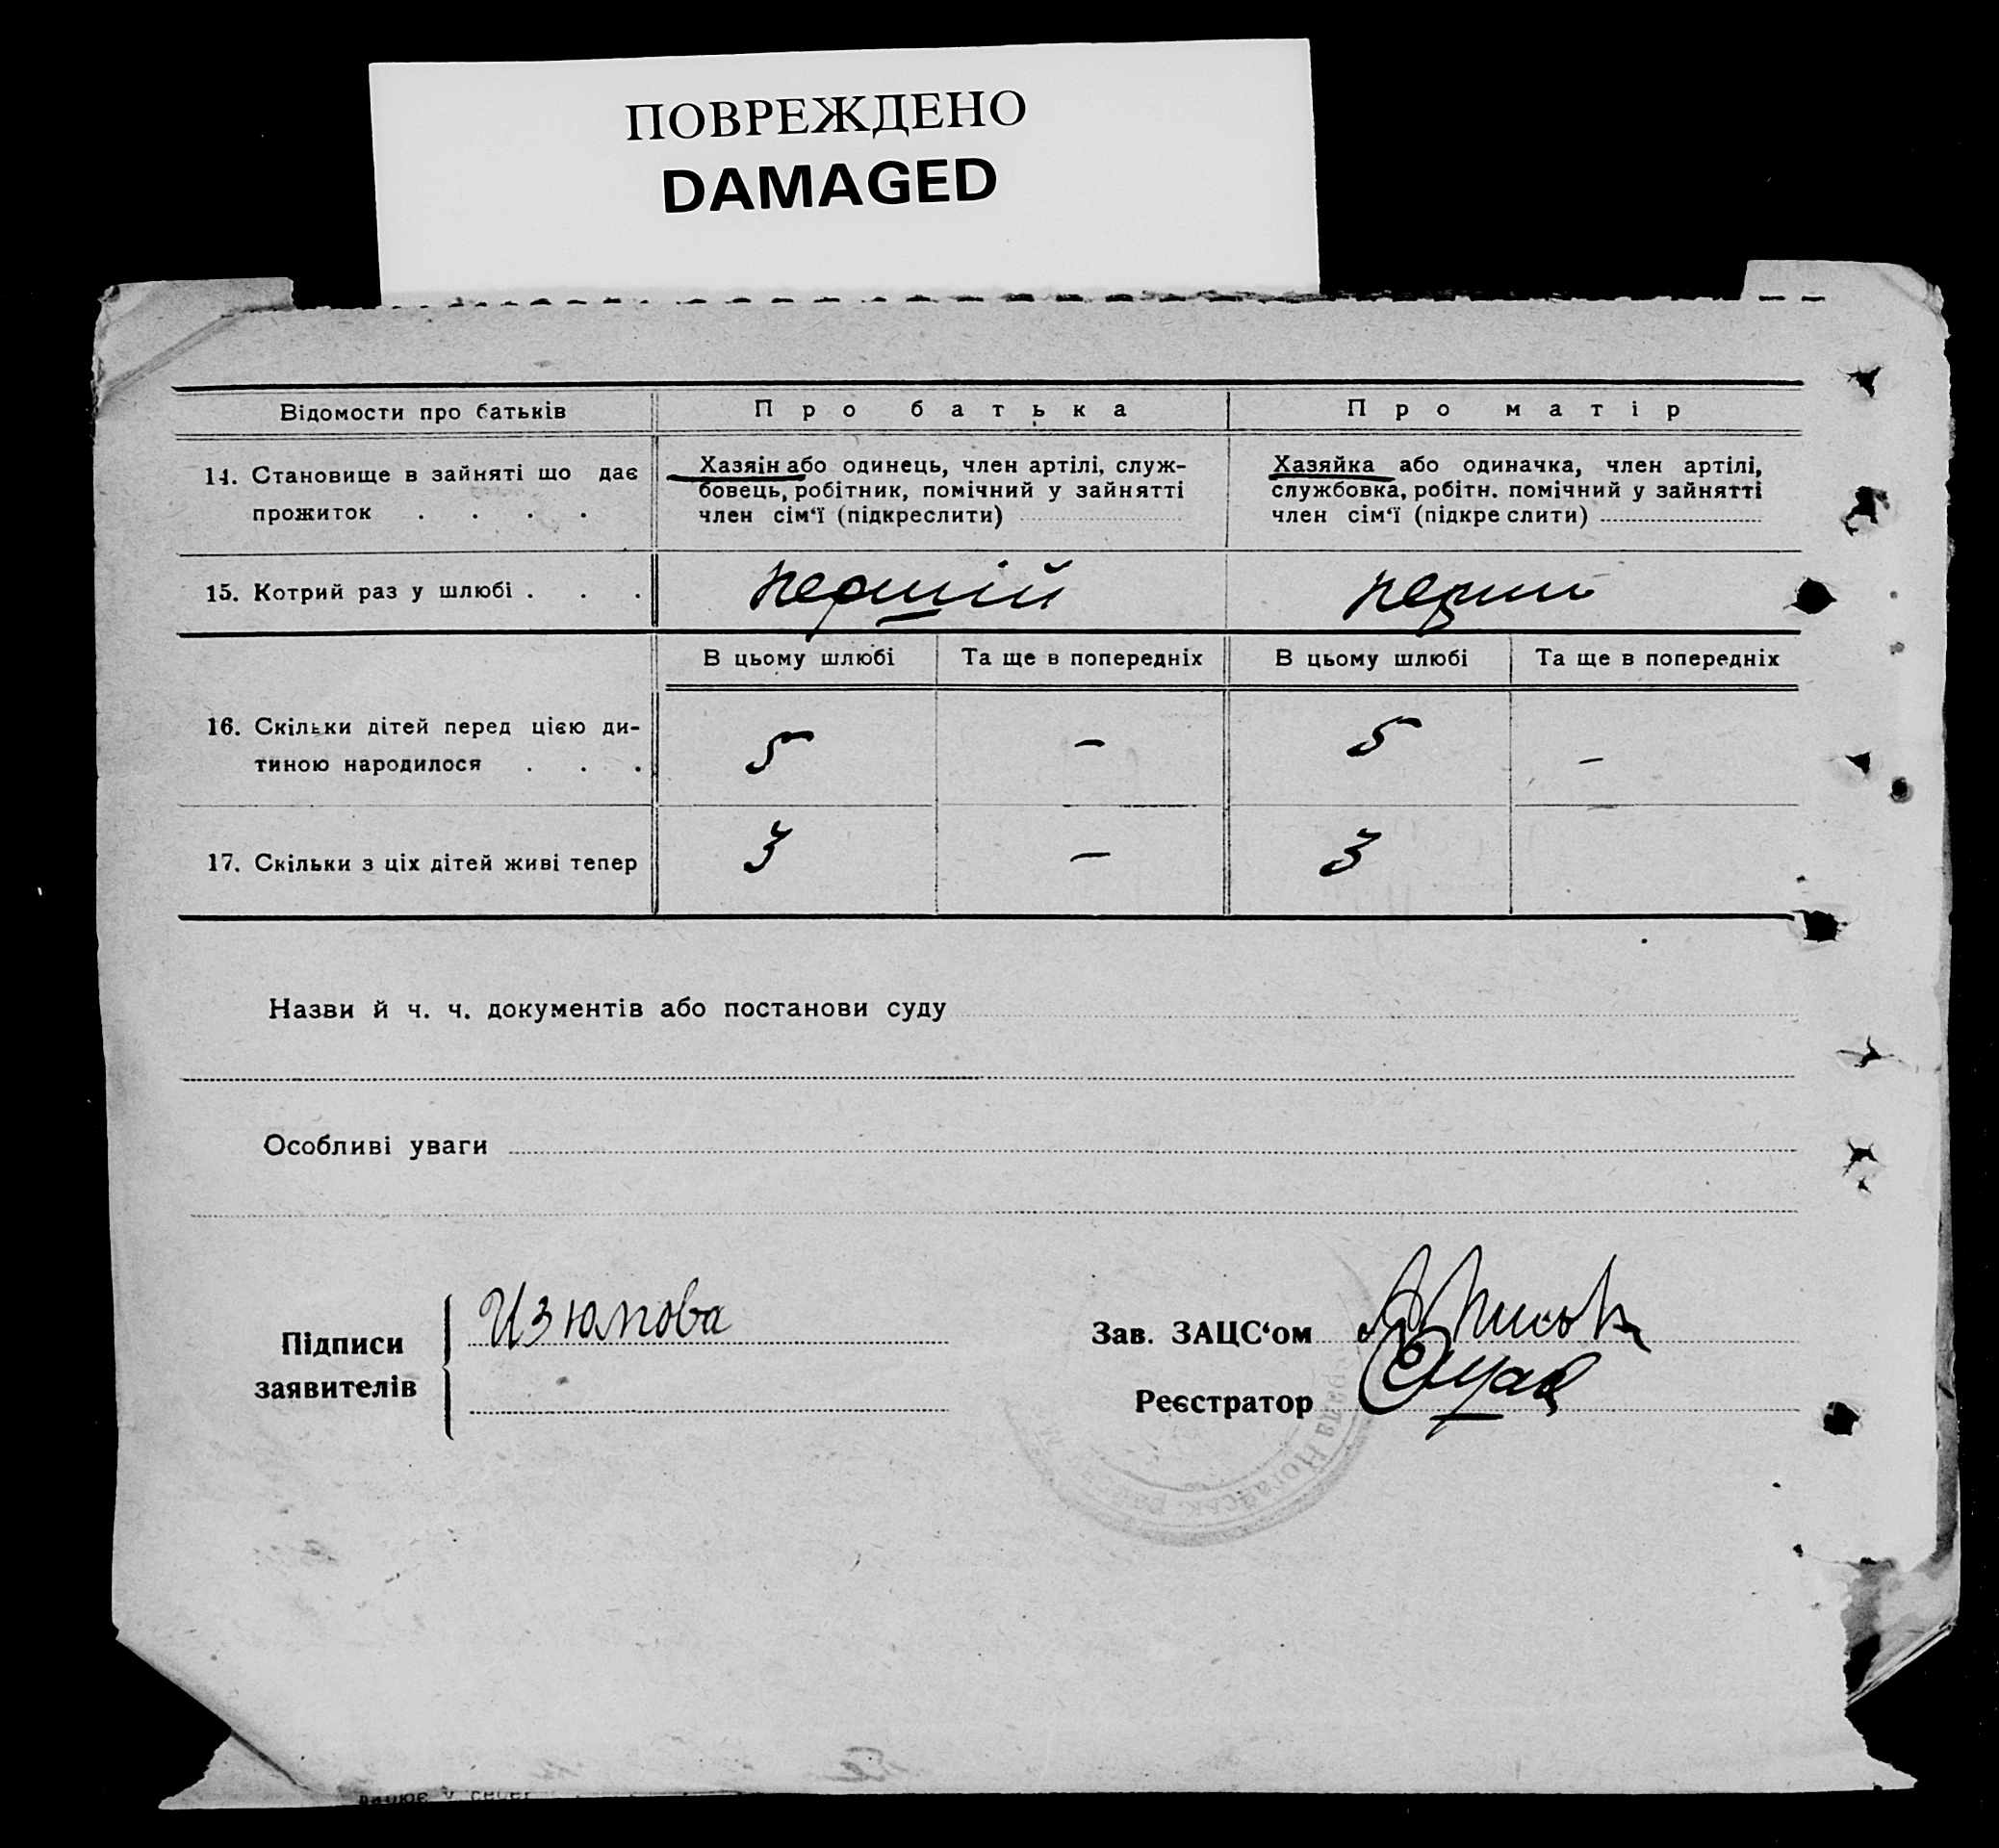 ПОВРЕЖДЕНО
DAMAGED
Відомости про батьків
Про батька
Про матір
14. Становище в зайняті що дає
прожиток . . . .
Хазяін або одинець, член артілі, служ-
бовець, робітник, помічний у зайнятті
член сім‘ї (підкреслити)
Хазяйка або одиначка, член артілі,
службовка, робітн. помічний у зайнятті
член сім‘ї (підкре слити)
15. Котрий раз у шлюбі . . .
першій
перши
В цьому шлюбі
Та ще в попередніх
В цьому шлюбі
Та ще в попередніх
16. Скільки дітей перед цією ди-
тиною народилося . . .
5
–
5
–
17. Скільки з ціх дітей живі тепер
3
–
3
Назви й ч. ч. документів або постанови суду
Особливі уваги
Підписи
заявителів
Изюмова
Зав. ЗАЦС‘ом
Реєстратор
рада Ногайськ.